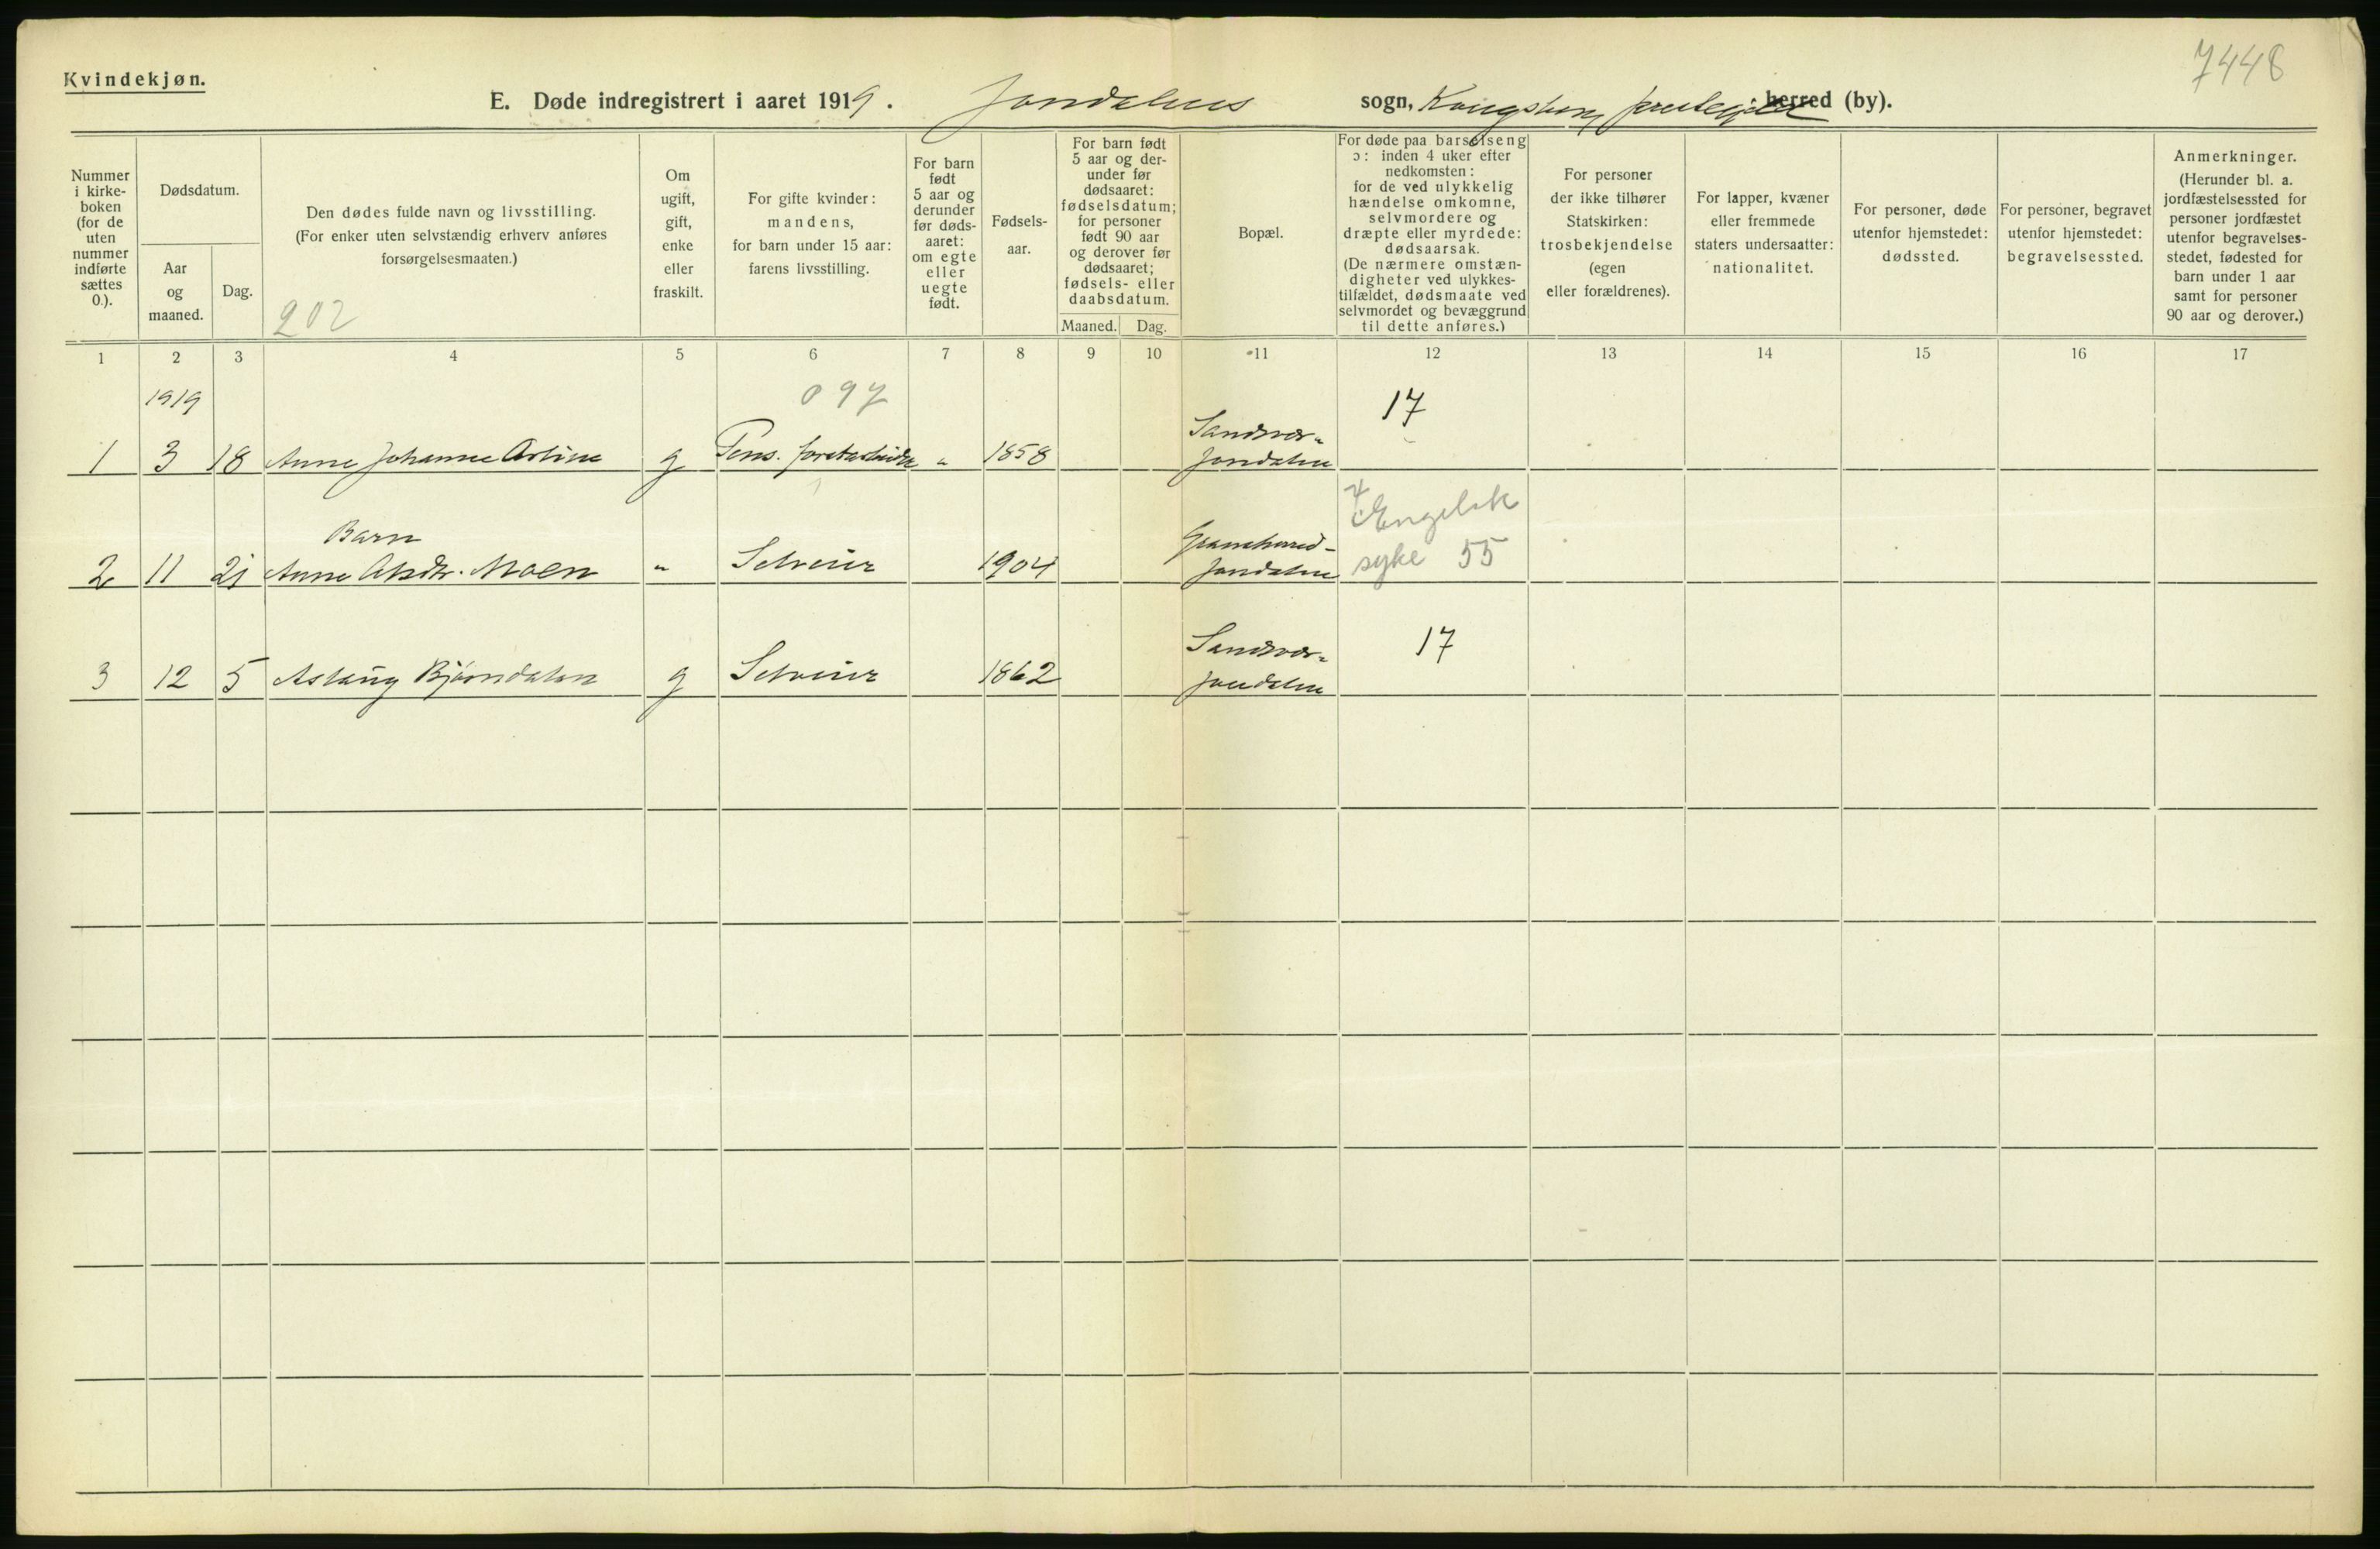 7448
Kvindekjøn.
E. Døde indregistrert i aaret 1919. Jondalens sogn, Kongsberg herred (by).
Nummer i kirke-boken (for de uten nummer indførte sættes 0.).
Dødsdatum.
Aar og maaned.
Dag.
Den dødes fulde navn og livsstilling.
(For enker uten selvstændig erhverv anføres forsørgelsesmaaten.)
202
Om ugift, gift, enke eller fraskilt.
For gifte kvinder: mandens, for barn under 15 aar: farens livsstilling.
For barn født 5 aar og derunder før døds-aaret: om egte eller uegte født.
Fødsels-aar.
For barn født 5 aar og der-under før dødsaaret: fødselsdatum; for personer født 90 aar og derover før dødsaaret; fødsels- eller daabsdatum.
Maaned. Dag.
Bopæl.
For døde paa barselseng ɔ: inden 4 uker efter nedkomsten: for de ved ulykkelig hændelse omkomne, selvmordere og dræpte eller myrdede: dødsaarsak.
(De nærmere omstæn-digheter ved ulykkes-tilfældet, dødsmaate ved selvmordet og bevæggrund til dette anføres.)
For personer der ikke tilhører Statskirken: trosbekjendelse (egen eller forældrenes).
For lapper, kvæner eller fremmede staters undersaatter: nationalitet.
For personer, døde utenfor hjemstedet: dødssted.
For personer, begravet utenfor hjemstedet: begravelsessted.
Anmerkninger.
(Herunder bl. a. jordfæstelsessted for personer jordfæstet utenfor begravelses-stedet, fødested for barn under 1 aar samt for personer 90 aar og derover.)
1 2 3 4 5 6 7 8 9 10 11 12 13 14 15 16 17
1919 097 17
Sandsvær-
1 3 18 Anne Johanne g Pens. „ 1858 Jondalen
Barn Engelsk
2 11 21 Anne Moen „ Selveier 1904 Jondalen syke 55
Sandsvær- 17
3 12 5 Aslaug Bjørndalen g Selveier 1862 Jondalen